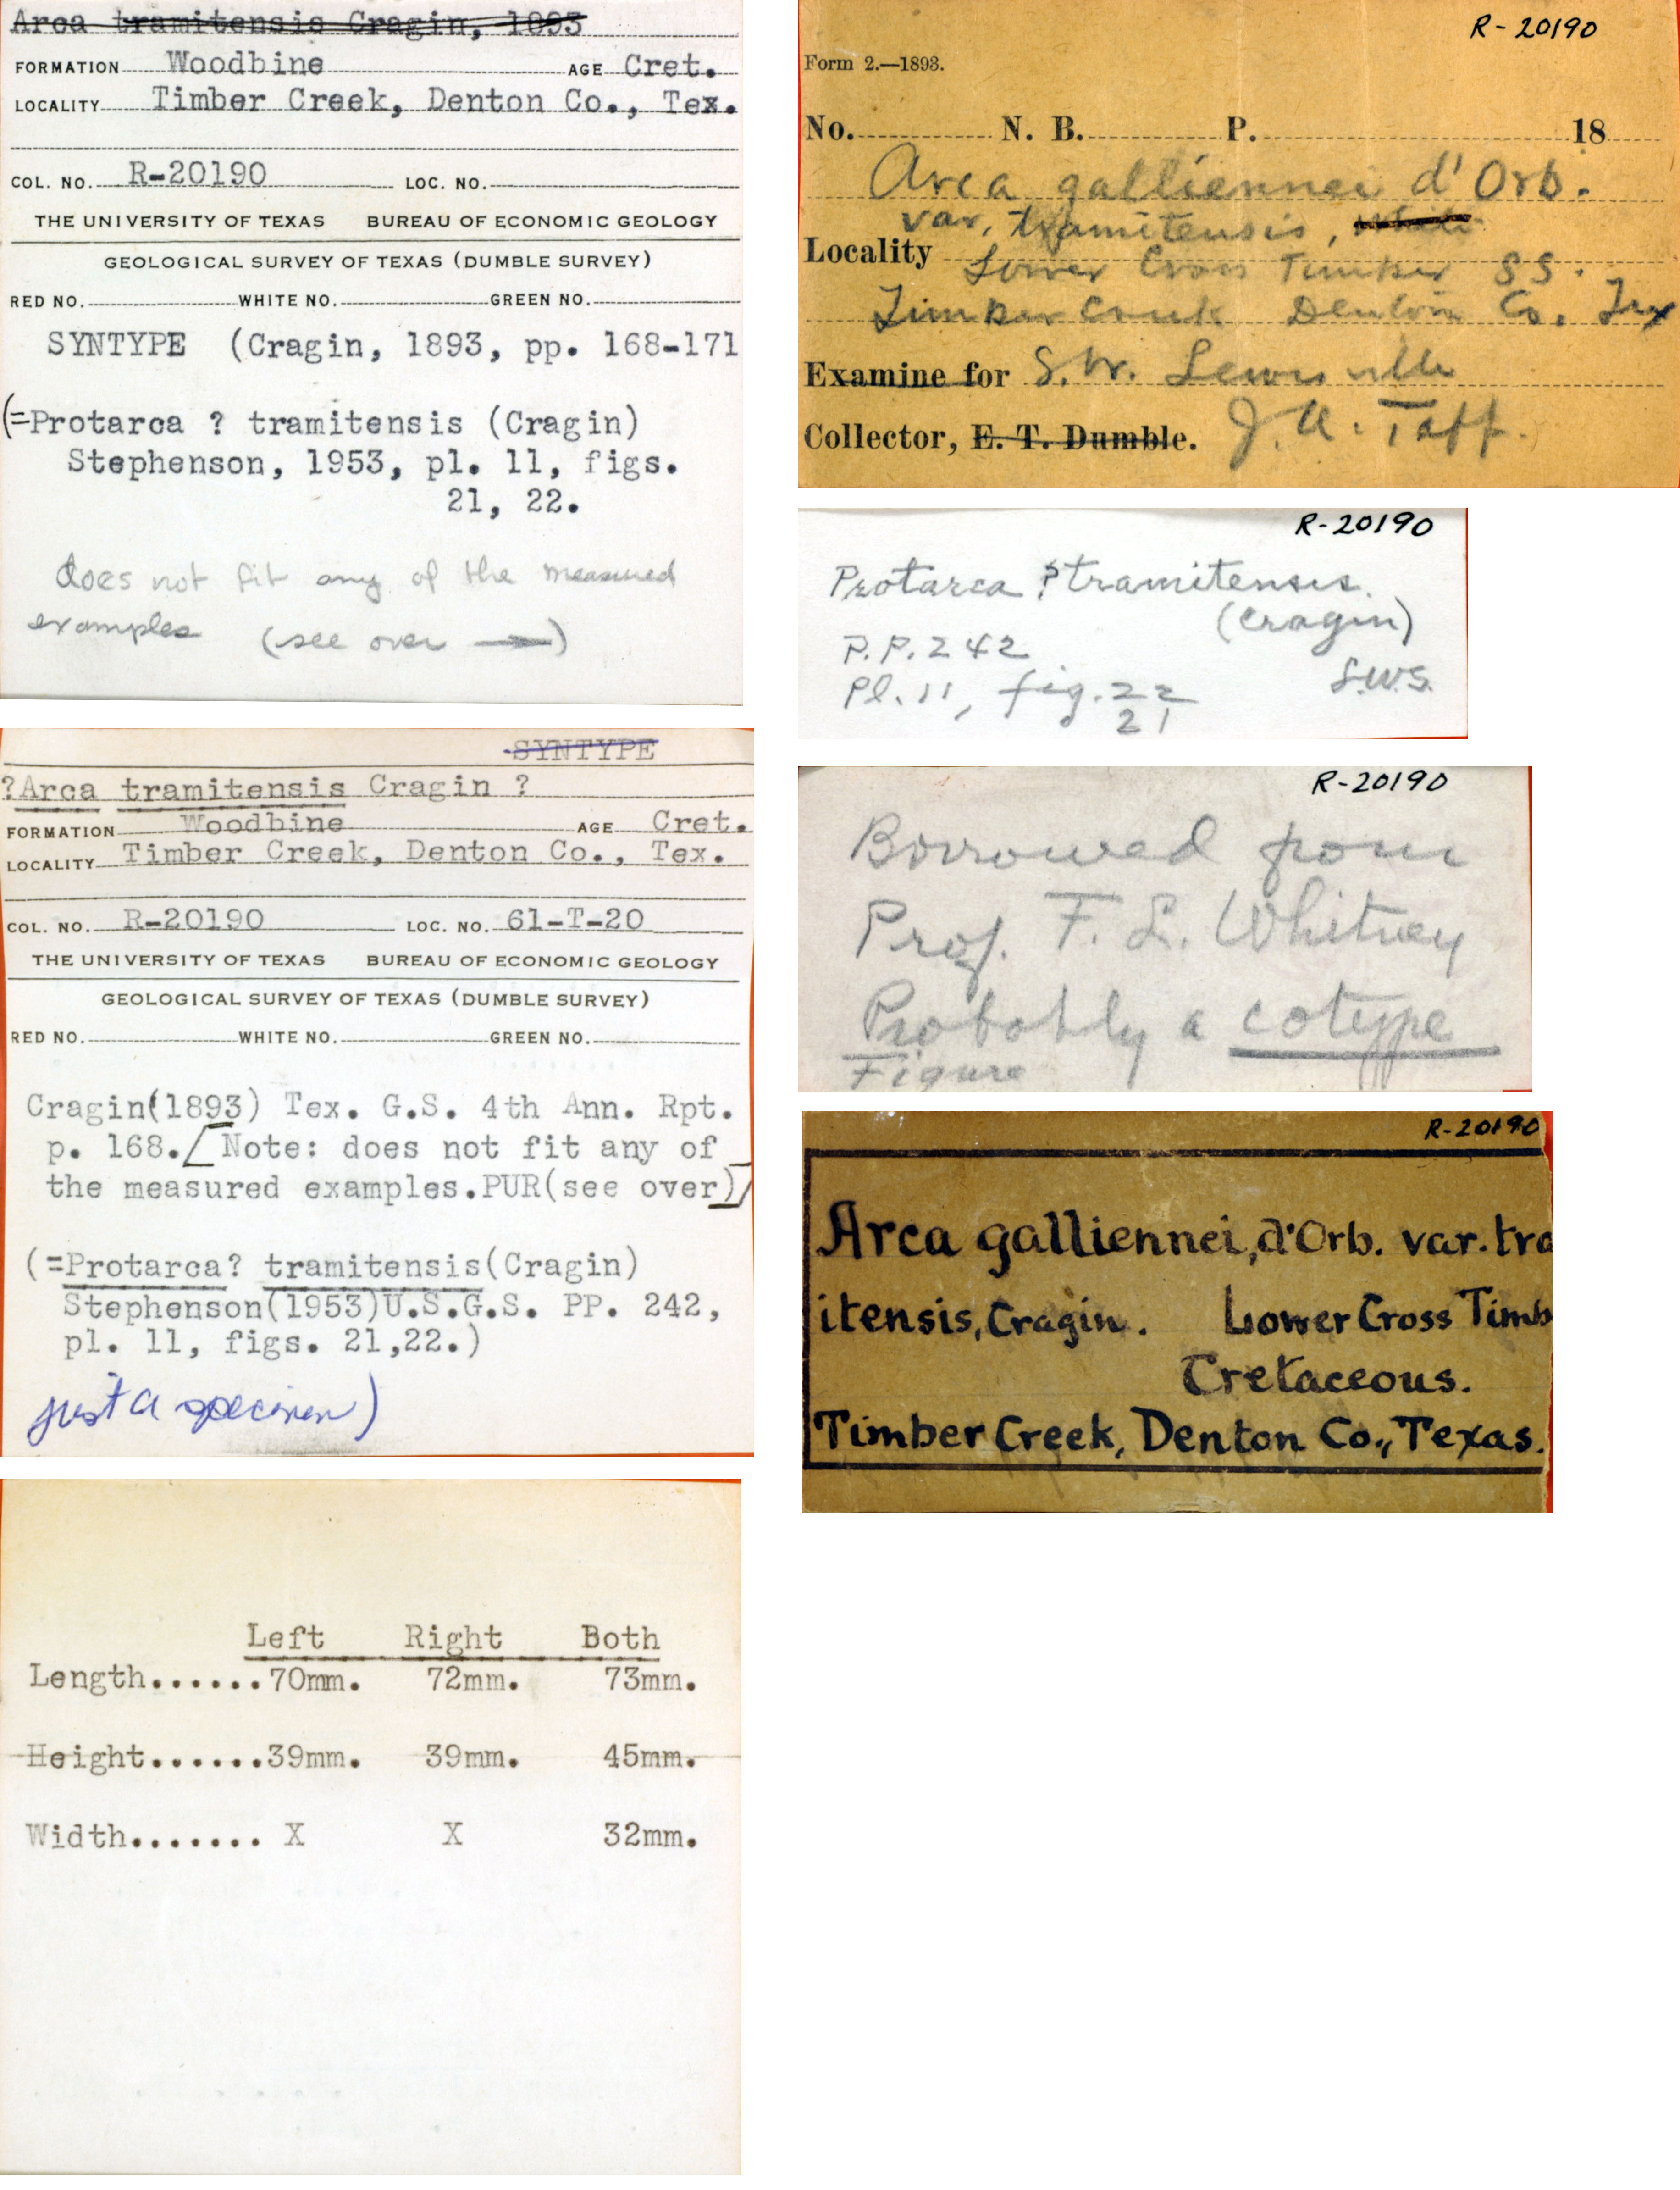 Arca tramitensis Cragin, 1893
FORMATION Woodbine AGE Cret.
LOCALITY Timber Creek, Denton Co., Tex.
COL. NO. R-20190 LOC. NO.
THE UNIVERSITY OF TEXAS BUREAU OF ECONOMIC GEOLOGY
GEOLOGICAL SURVEY OF TEXAS (DUMBLE SURVEY)
RED NO. WHITE NO. GREEN NO.
SYNTYPE (Cragin, 1893, pp. 168-171
(=Protarca ? tramitensis (Cragin)
Stephenson, 1953, pl. 11, figs.
21, 22.
does not fit any of the measured
examples (see over →)
SYNTYPE
?Arca tramitensis Cragin ?
FORMATION Woodbine AGE Cret.
LOCALITY Timber Creek, Denton Co., Tex.
COL. NO. R-20190 LOC. NO. 61-T-20
THE UNIVERSITY OF TEXAS BUREAU OF ECONOMIC GEOLOGY
GEOLOGICAL SURVEY OF TEXAS (DUMBLE SURVEY)
RED NO. WHITE NO. GREEN NO.
Cragin(1893) Tex. G.S. 4th Ann. Rpt.
p. 168. [Note: does not fit any of
the measured examples.PUR(see over)]
(=Protarca? tramitensis(Cragin)
Stephenson(1953)U.S.G.S. PP. 242,
pl. 11, figs. 21,22.)
just a specimen)
Left Right Both
Length......70mm. 72mm. 73mm.
Height......39mm. 39mm. 45mm.
Width....... X X 32mm.
R-20190
Form 2.—1893.
No. N. B. P. 18
Arca galliennei d'Orb.
var. tramitensis, White
Locality Lower Cross Timber SS.
Timber Creek Denton Co. Tex
Examine for S.W. Lewisville
Collector, E. T. Dumble. J. A. Taff.
R-20190
Protarca ? tramitensis
(Cragin)
P.P. 242
Pl. 11, fig. 22
21
S.W.S.
R-20190
Borrowed from
Prof. F. L. Whitney
Probably a cotype
Figure
R-20190
Arca galliennei, d'Orb. var. tra
itensis, Cragin. Lower Cross Timb
Cretaceous.
Timber Creek, Denton Co., Texas.